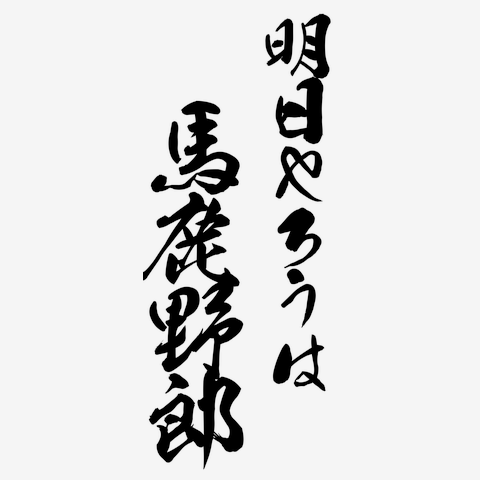 明日やろうは
馬鹿野郎